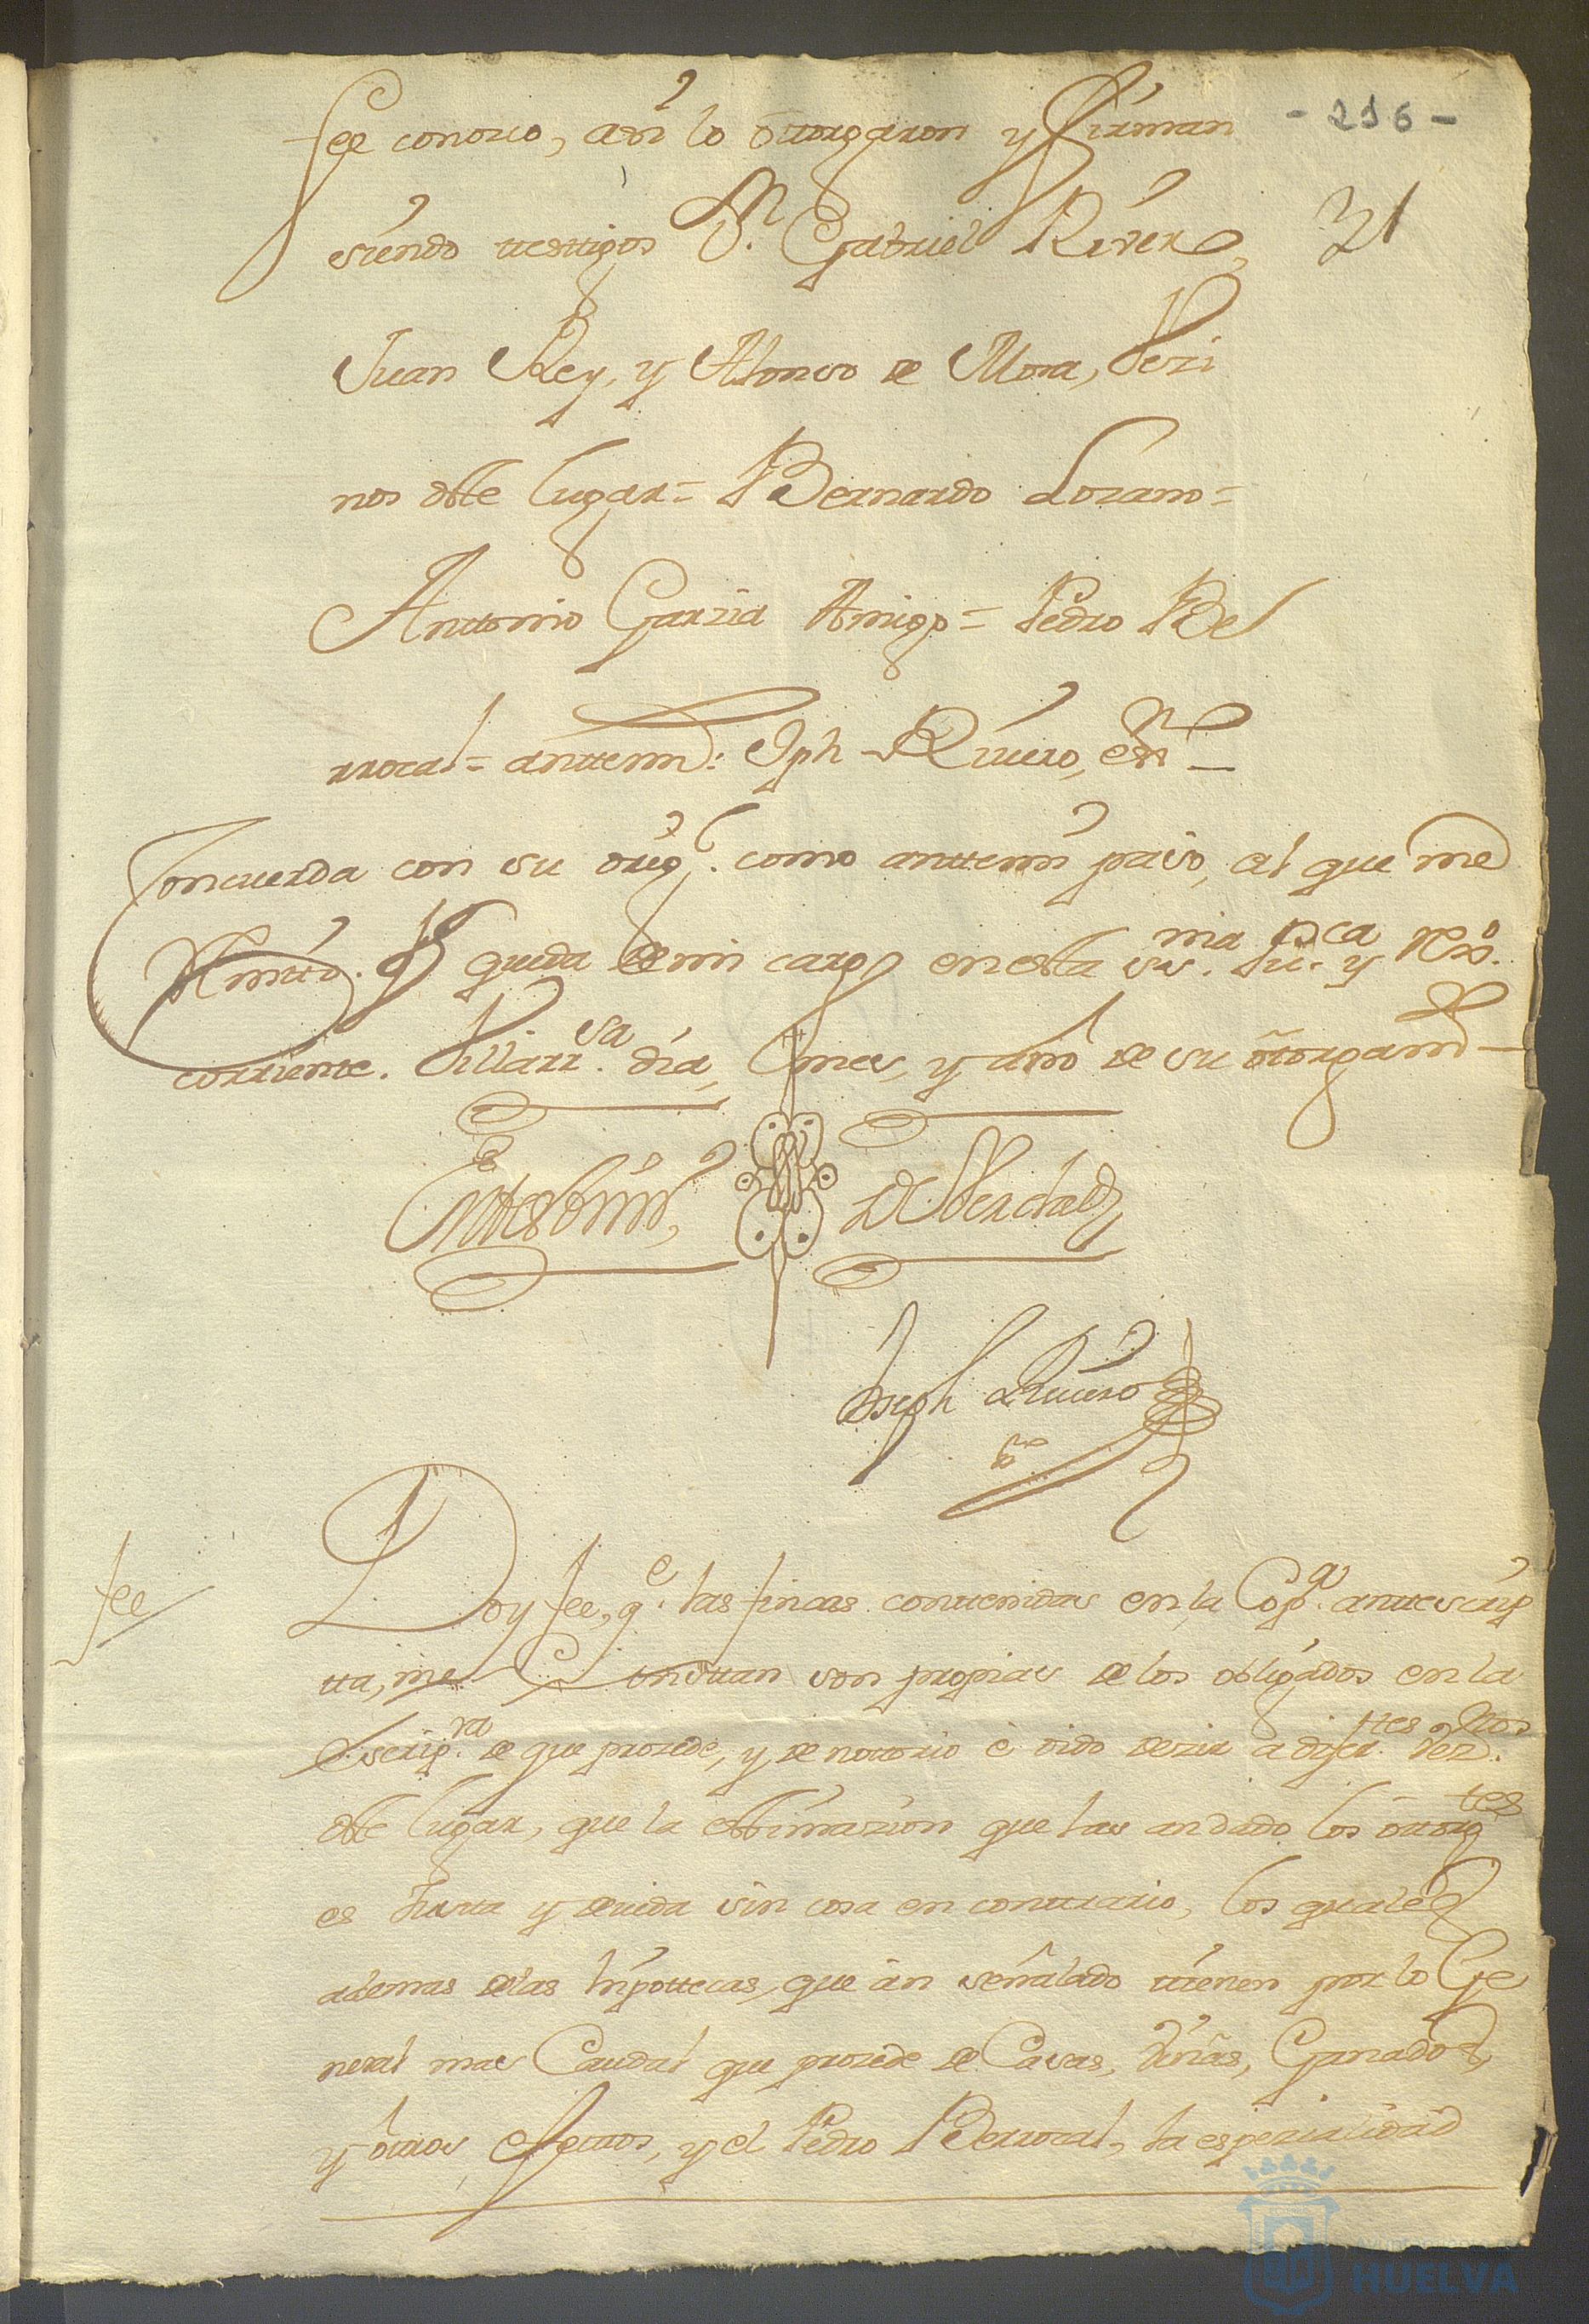 - 216 -
fee conozco, asi lo ottorgaron y firman
31
siendo ttesttigos Dn. Gabriel Rivera,
Juan Rey, y Alonso de Mora, Vezi
nos dste lugar = Bernardo Lozano =
Anttonio Garzia Amigo = Pedro Be
rrocal = anttemi: Jph Rivero, essno
Concuerda con su orig.l como anttemi paso, al que me
Remito. Y queda de mi cargo en esta ssma. pu.ca y Rexo.
corriente. Villarr.sa dia, mes, y año de su ottorgam.to
En ttesttim.o de Verdad
Joseph Rivero
fee
Doy fee, q.e las fincas conttenidas en la Cop.a anttescrip
tta, me Consttan son propias de los obligados en la
Escrip.ra de que prozede, y de nottorio è oido dezir a difer.ttes vez.nos
dste lugar, que la esttimazion que las an dado los ottorg.tes
es Justta y devida sin cosa en conttrario, los quales
ademas delas hipottecas, que àn señalado ttienen por lo Ge
neral mas Caudal que prozede de Casas, viñas, Ganados,
y ottros efecttos, y el Pedro Berrocal, la espezialidad
HUELVA